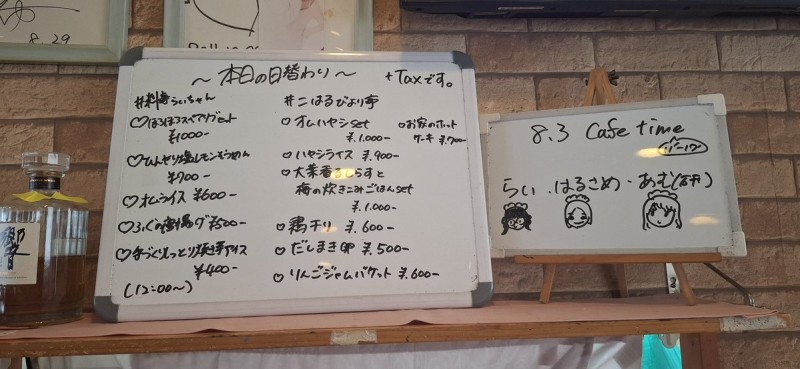 8.29
～本日の日替わり～ +Taxです。
#料寿らぃちゃん
♡ほろほろスペアリブセット
¥1000-
♡ひんやり塩レモンそうめん
¥900-
♡オムライス ¥600-
♡ふぐの唐揚げ ¥500-
♡手づくりしっとり焼き芋アイス
¥400-
(12:00～)
#こはるびより亭
♡オムハヤシset
¥.1.000-
♡お家のホット
ケーキ ¥700-
♡ハヤシライス ¥.900-
♡大葉香るしらすと
梅の炊きこみごはんset
¥.1.000-
♡鶏チリ ¥.600-
♡だしまき卵 ¥.500-
♡りんごジャムバケット ¥.600-
8.3 Cafe time
らぃ・はるさめ・あむ(研)
響